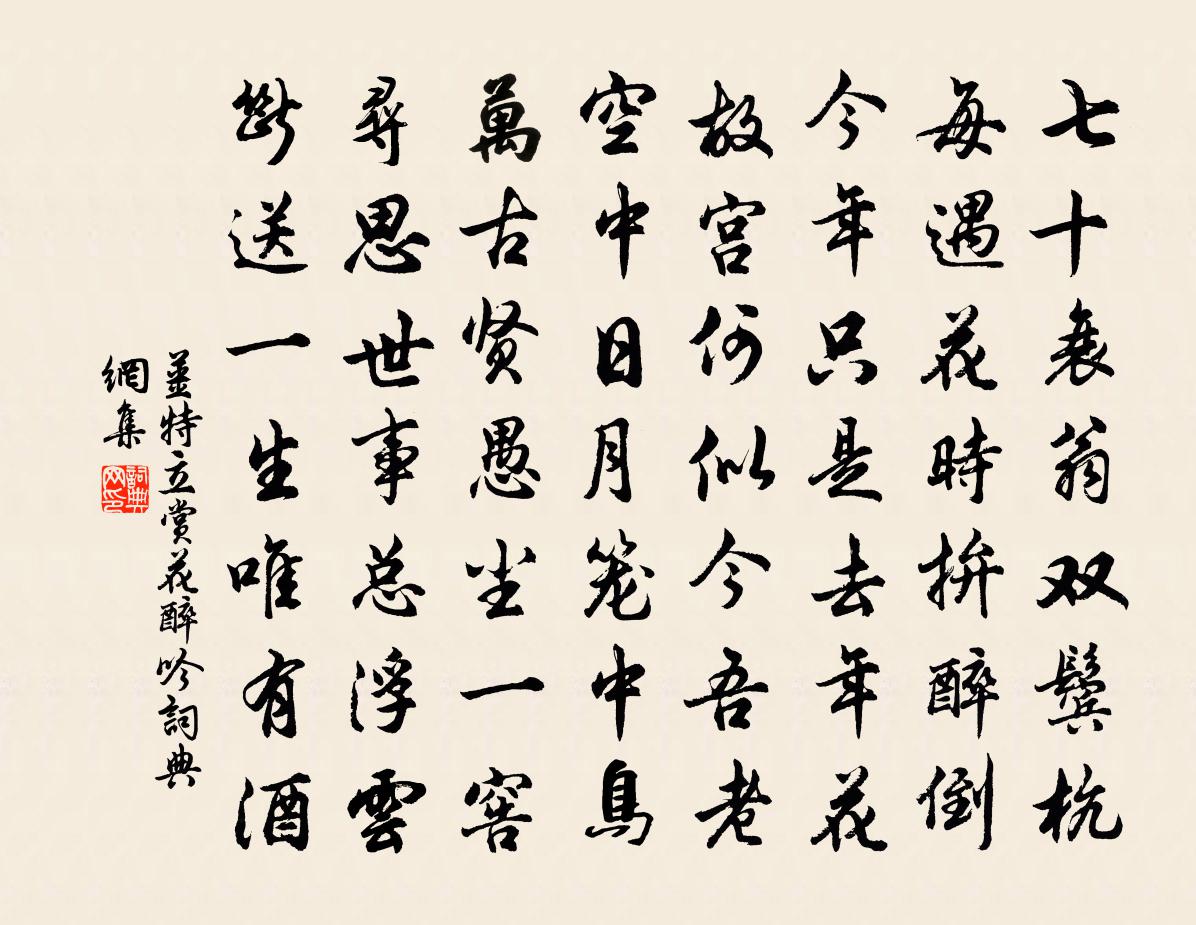 七十衰翁双鬓秃
每遇花時拚醉倒
今年只是去年花
故宫何似今吾老
空中日月笼中鳥
萬古贤愚坐一窖
尋思世事总浮雲
断送一生唯有酒
薑特立赏花醉吟詞典
網集
詞典網印